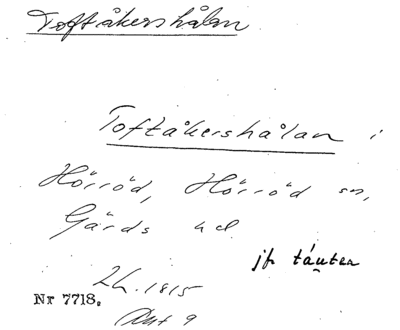 Toftåkershålan
Toftåkershålan i
Hörröd, Hörröd sn,
Gärds hd
jfr
Lh. 1815
Nr 7718.
Akt 9